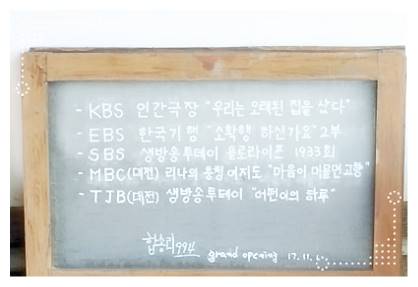 - KBS 인간극장 "우리는 오래된 집을 샀다"
- EBS 한국기행 "소확행 하신가요" 2부
- SBS 생방송투데이 욜로라이프 1933회
- MBC(대전) 리나의 충청어지도 "마음이 머물면고향"
- TJB(대전) 생방송투데이 "어떤이의 하루"
합송리994 grand opening 17.11.